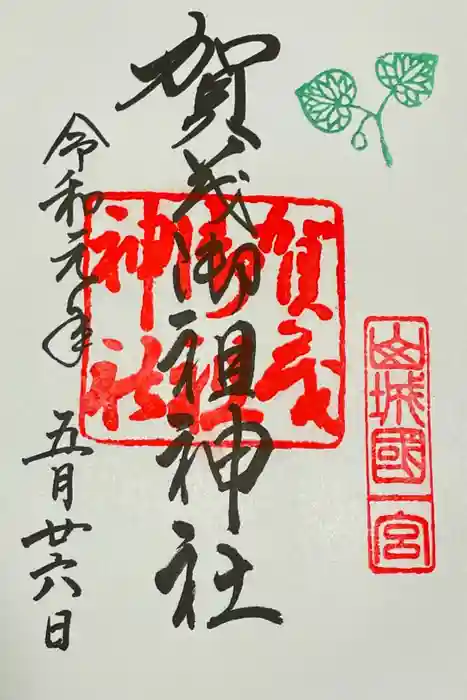 山城國一宮
賀茂御祖神社
賀茂
御祖
神社
令和元年 五月廿六日